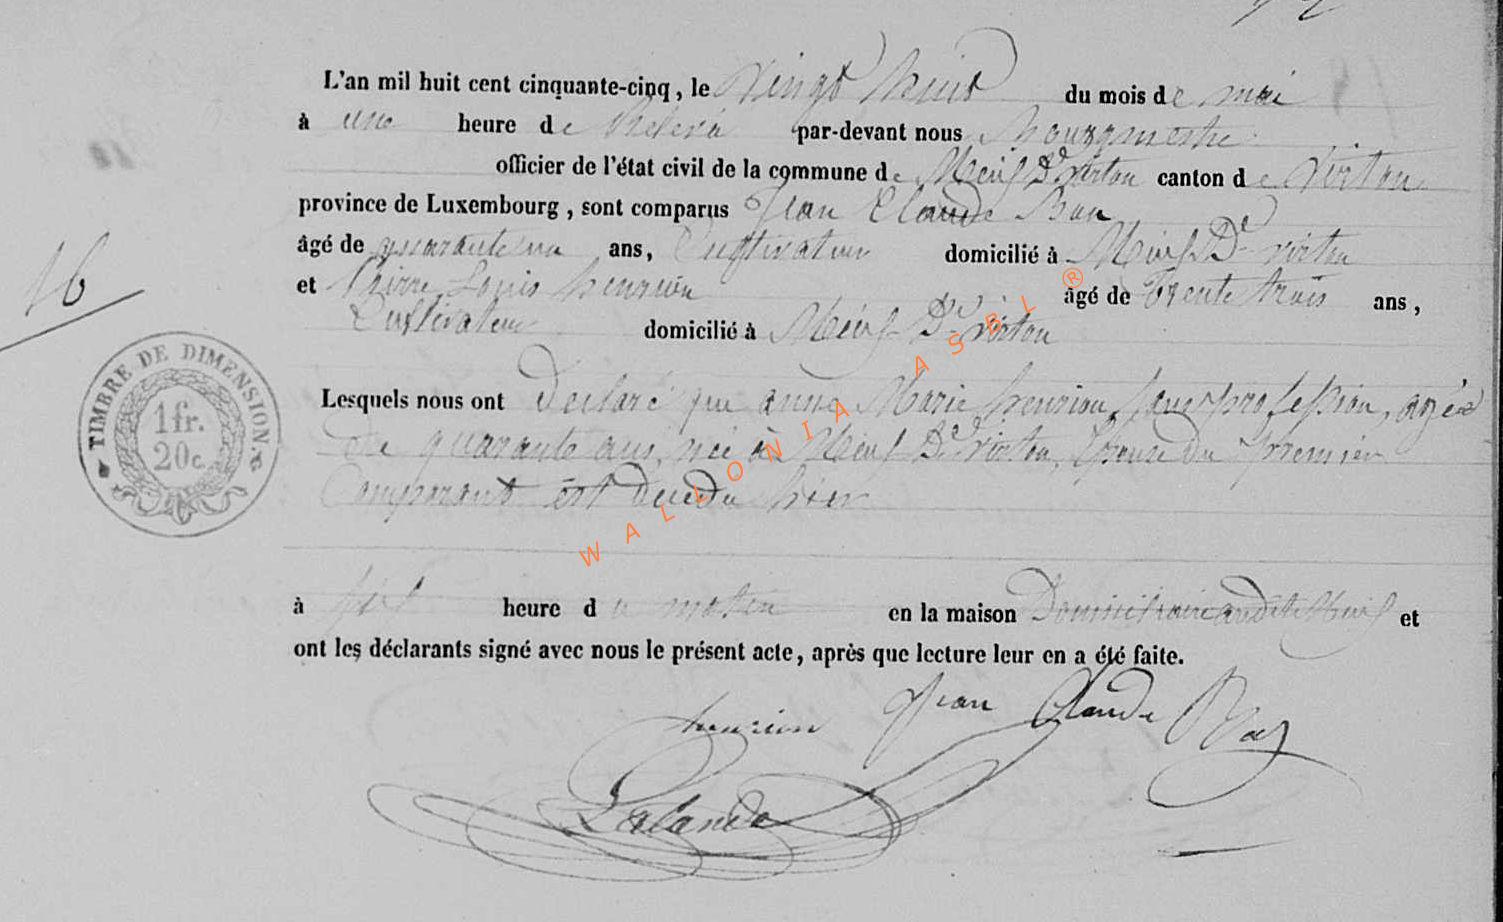 L'an mil huit cent cinquante-cinq, le Vingt huit du mois de mai
à une heure de Relevé par-devant nous Bourgmestre
officier de l'état civil de la commune de Meix Dt virton canton de Virton
province de Luxembourg, sont comparus Jean Claude
âgé de quarante un ans, Cultivateur domicilié à Meix Dt virton
et Pierre Louis henrion âgé de Trente trois ans,
Cultivateur domicilié à Meix Dt virton
Lesquels nous ont Déclaré que anne Marie henrion, sans profession, agée
De quarante ans, née à Meix Dt virton, Epouse du premier
Comparant est décédé hier
à heure du matin en la maison et
ont les déclarants signé avec nous le présent acte, après que lecture leur en a été faite.
henrion Jean Claude
Lalande
16
TIMBRE DE DIMENSION
1 fr.
20 c.
WALLONIA ASBL ®